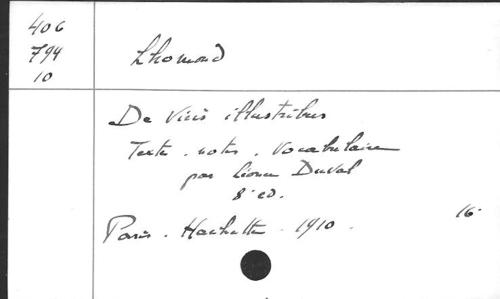 406
794
10
Lhomond
De Viris illustribus
Texte . notes . Vocabulaire
par Léonce Duval
8e ed.
Paris . Hachette . 1910 .
16°